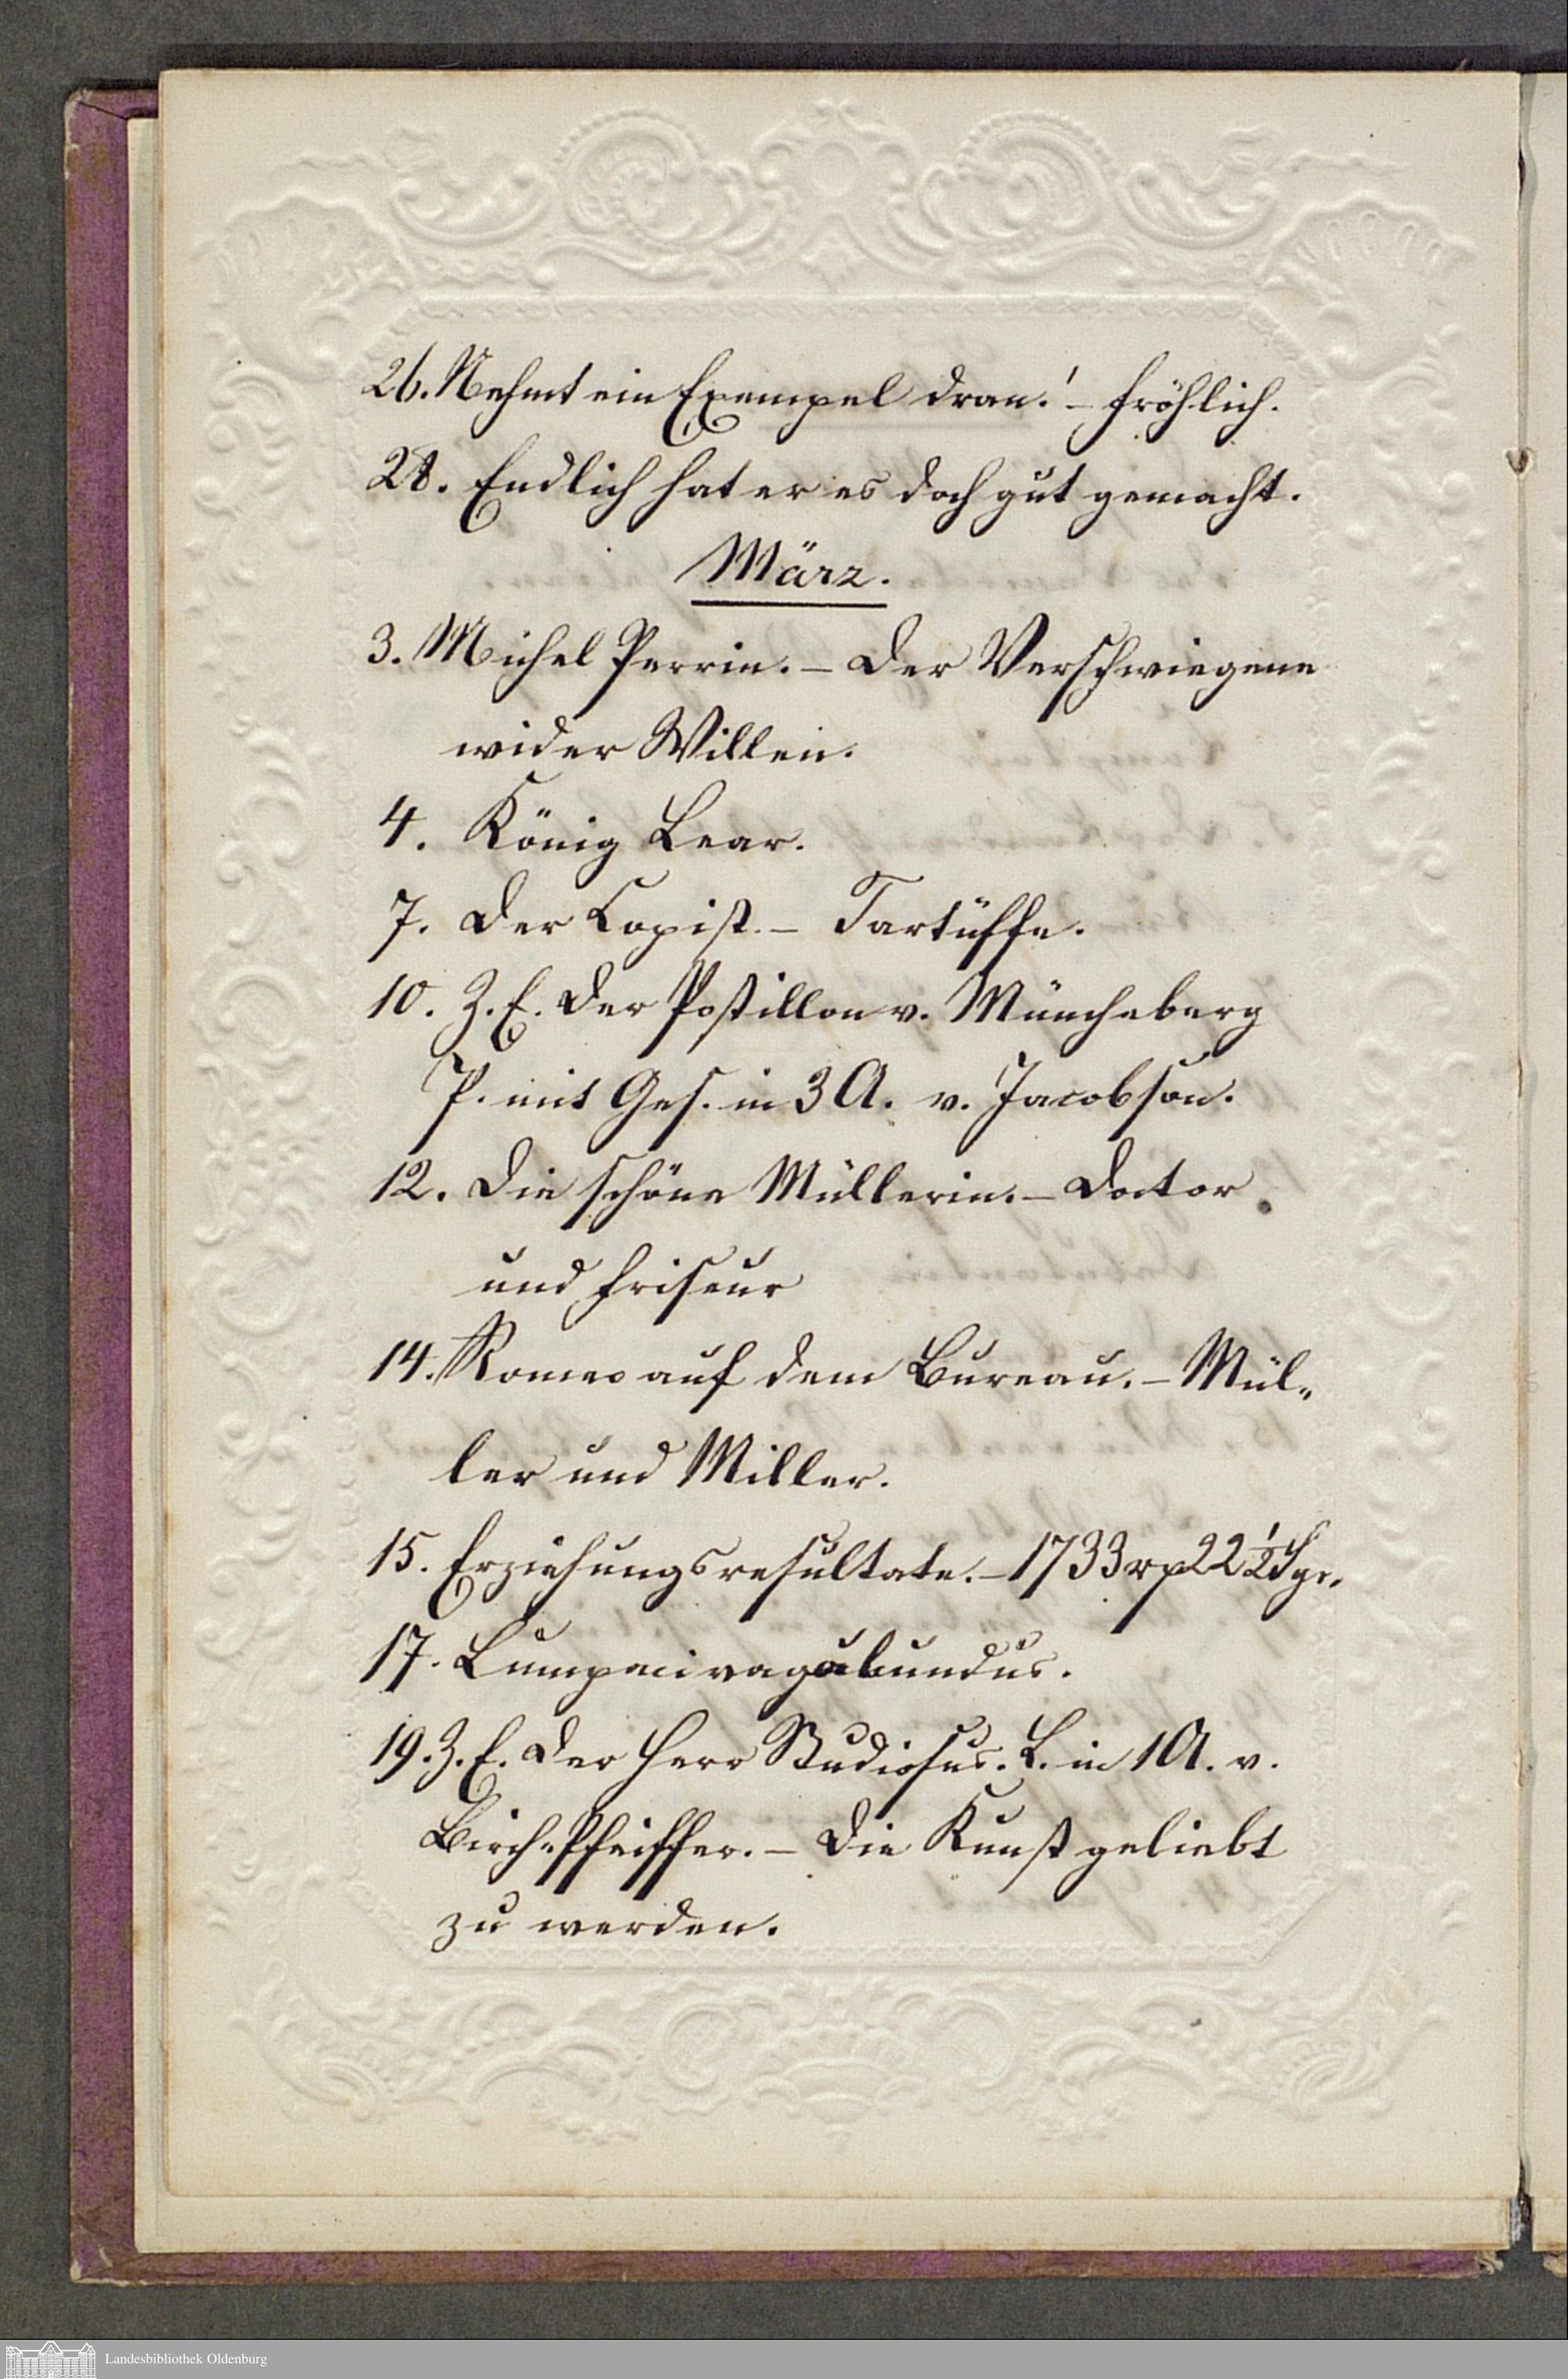 26. Nehmt ein Exempel dran! – Fröhlich.
28. Endlich hat er es doch gut gemacht.
März.
3. Michel Perrin. – Der Verschwiegene
wider Willen.
4. König Lear.
7. Der Copist. – Tartüffe.
10. Z. E. Der Postillon v. Müncheberg
P. mit Ges. in 3 A. v. Jacobson.
12. Die schöne Müllerin. – Doctor
und Friseur
14. Romeo auf dem Bureau. – Mül„
ler und Miller.
15. Erziehungsresultate. – 1733 rp 22 1/2 Sgr.
17. Lumpacivagabundus.
19. Z. E. Der Herr Studiosus. L. in 1 A. v.
Birch-Pfeiffer. – Die Kunst geliebt
zu werden.
Landesbibliothek Oldenburg